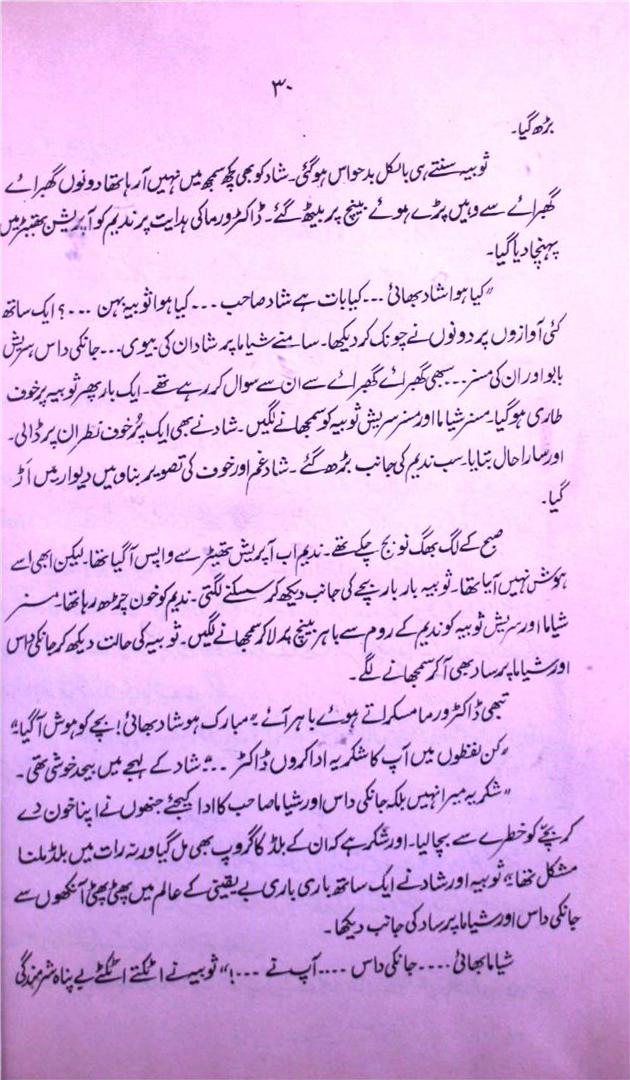 ۳۰
بڑھ گیا۔
ثوبیہ سنتے ہی بالکل بدحواس ہوگئی۔ شاد کو بھی کچھ سمجھ میں نہیں آرہا تھا دونوں گھبرائے
گھبرائے سے وہیں پڑے ہوئے بینچ پر بیٹھ گئے۔ ڈاکٹر ورما کی ہدایت پر ندیم کو آپریشن تھیٹر میں
پہنچا دیا گیا۔
"کیا ہوا شاد بھائی ... کیا بات ہے شاد صاحب ... کیا ہوا ثوبیہ بہن ... ؟ ایک ساتھ
کئی آوازوں پر دونوں نے چونک کر دیکھا۔ سامنے شیاما پرشاد ان کی بیوی ... جانکی داس، سریش
بابو اور ان کی مسز ... سبھی گھبرائے گھبرائے سے ان سے سوال کر رہے تھے۔ ایک بار پھر ثوبیہ پر خوف
طاری ہوگیا۔ مسز شیاما اور مسز سریش ثوبیہ کو سمجھانے لگیں۔ شاد نے بھی ایک پُر خوف نظر ان پر ڈالی۔
اور سارا حال بتایا۔ سب ندیم کی جانب بڑھ گئے۔ شاد غم اور خوف کی تصویر بنا وہیں دیوار میں اڑ
گیا۔
صبح کے لگ بھگ نو بج چکے تھے۔ ندیم اب آپریشن تھیٹر سے واپس آگیا تھا۔ لیکن ابھی اسے
ہوش نہیں آیا تھا۔ ثوبیہ بار بار بچے کی جانب دیکھ کر سسکنے لگتی۔ ندیم کو خون چڑھ رہا تھا۔ مسز
شیاما اور سریش ثوبیہ کو ندیم کے روم سے باہر بینچ پر لا کر سمجھانے لگیں۔ ثوبیہ کی حالت دیکھ کر جانکی داس
اور شیاما پرساد بھی آکر سمجھانے لگے۔
تبھی ڈاکٹر ورما مسکراتے ہوئے باہر آئے "مبارک ہو شاد بھائی! بچے کو ہوش آگیا"
"کن لفظوں میں آپ کا شکریہ ادا کروں ڈاکٹر ..." شاد کے لہجے میں بیحد خوشی تھی۔
"شکریہ میرا نہیں بلکہ جانکی داس اور شیاما صاحب کا ادا کیجئے جنھوں نے اپنا خون دے
کر بچے کو خطرے سے بچا لیا۔ اور شکر ہے کہ ان کے بلڈ کا گروپ بھی مل گیا ورنہ رات میں بلڈ ملنا
مشکل تھا" ثوبیہ اور شاد نے ایک ساتھ باری باری بے یقینی کے عالم میں پھٹی پھٹی آنکھوں سے
جانکی داس اور شیاما پرساد کی جانب دیکھا۔
شیاما بھائی .... جانکی داس .... آپ نے ...!" ثوبیہ نے اٹکتے اٹکتے بے پناہ شرمندگی